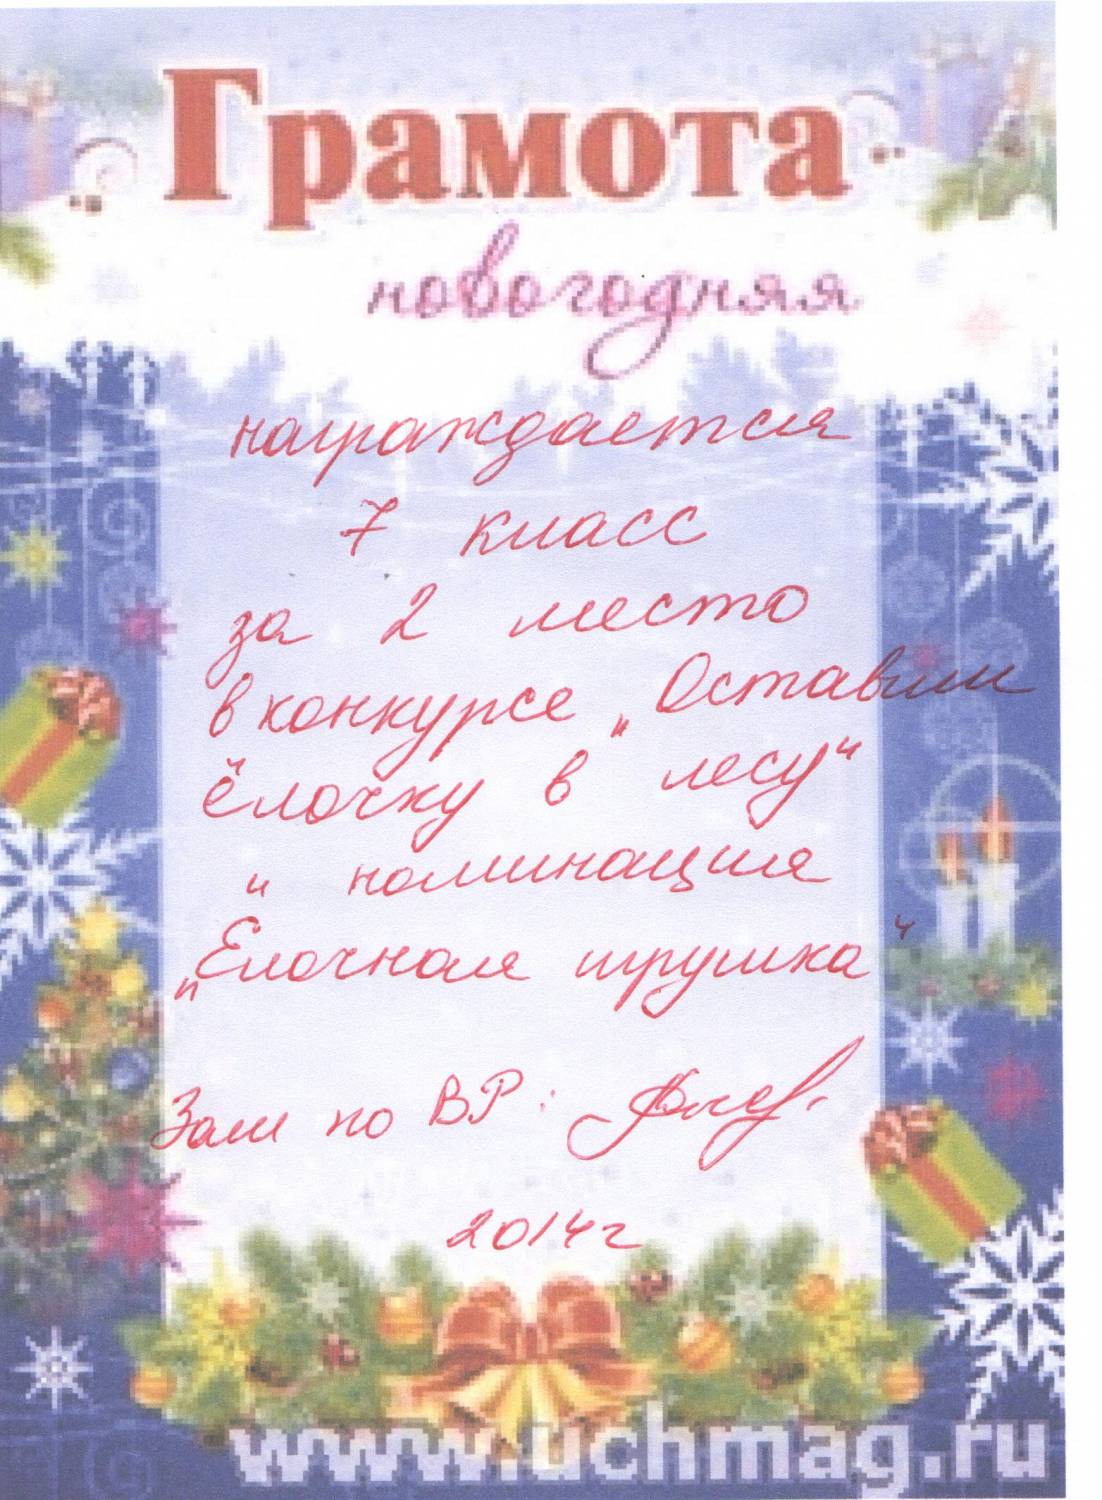 Грамота
новогодняя
награждается
7 класс
за 2 место
в конкурсе „Оставим
ёлочку в лесу“
и номинация
„Елочная игрушка“
Зам по ВР:
2014г
www.uchmag.ru